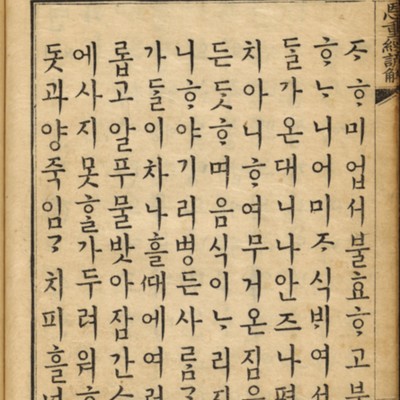 恩重經諺解
ᄌᆞᄒᆞ미업서불효ᄒᆞ고
ᄒᆞᄂᆞ니어미ᄌᆞ식ᄇᆡ여
ᄃᆞᆯ가온대니나안즈나편
치아니ᄒᆞ여무거온짐
든ᄃᆞᆺᄒᆞ며음식이ᄂᆞ리지
니ᄒᆞ야기리병든사ᄅᆞᆷᄀᆞ
가ᄃᆞᆯ이차나흘ᄯᅢ에여러
롭고알푸물밧아잠간
에사지못ᄒᆞᆯ가두려워ᄒᆞ
돗과양죽임ᄀᆞ치피흘